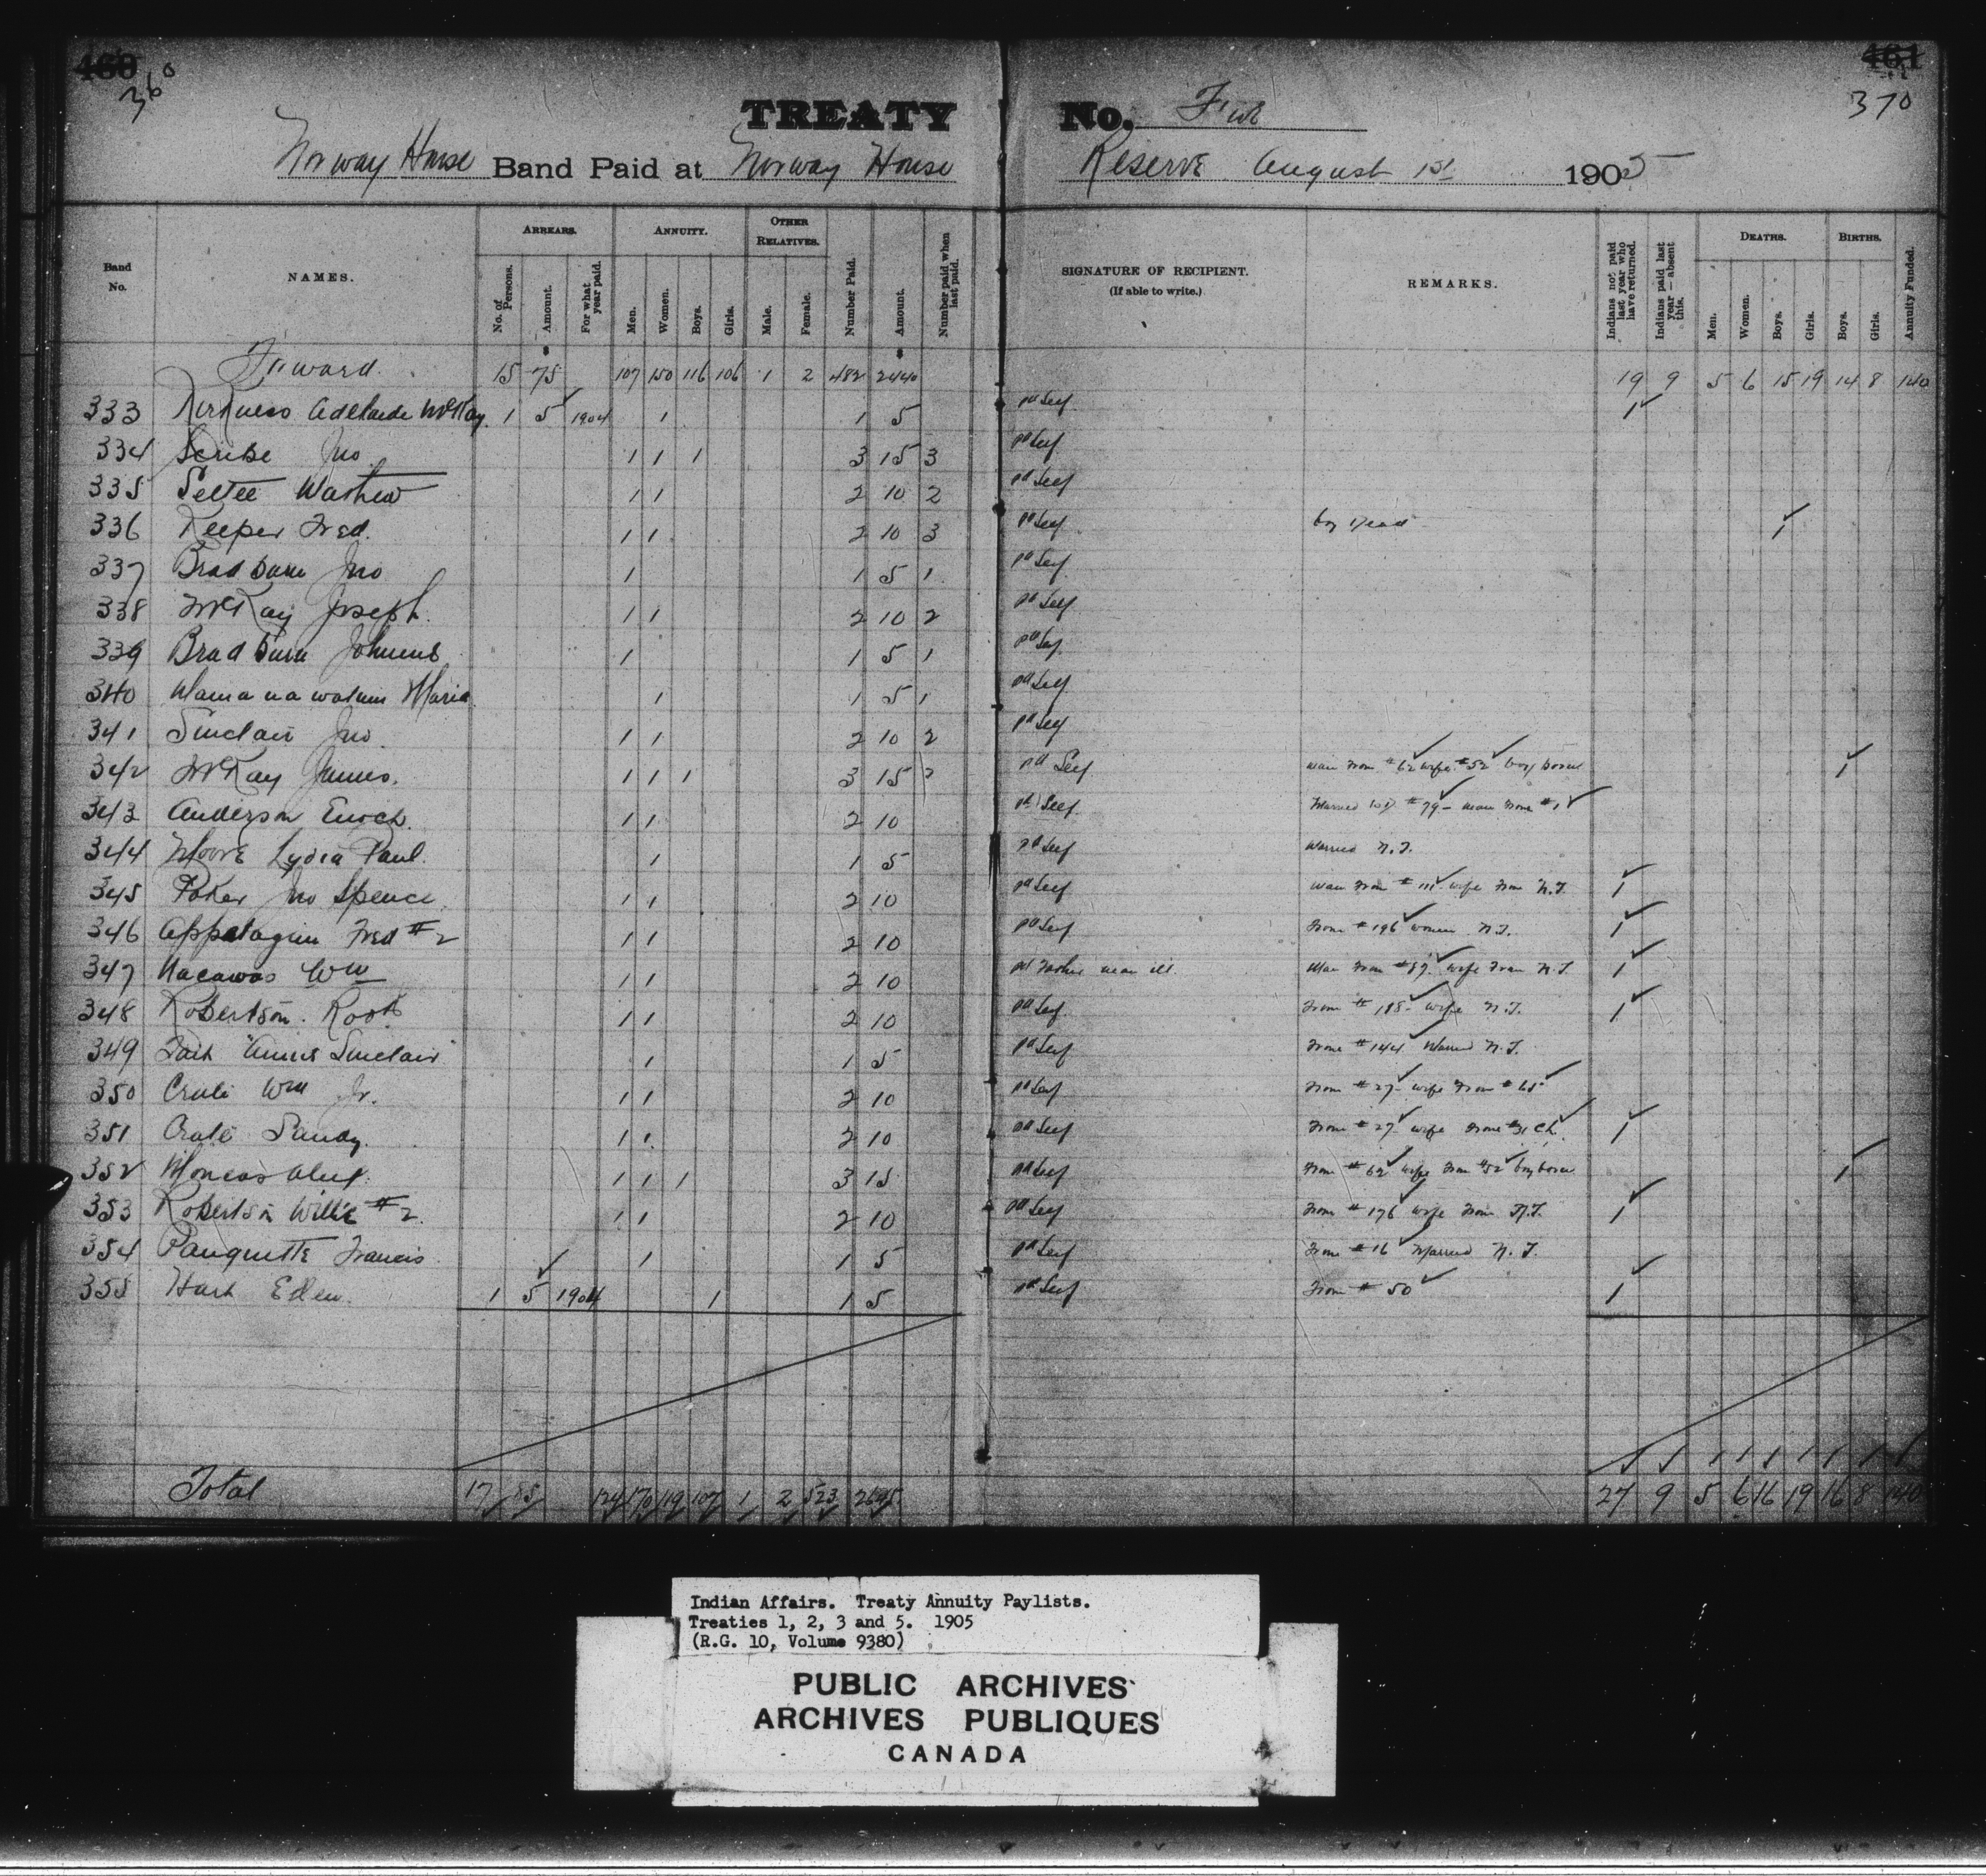 460 461
360 370
TREATY No. Five
Norway House Band Paid at Norway House Reserve August 1st 1905
Band No. NAMES. ARREARS. No. of Persons. Amount. For what year paid. ANNUITY. Men. Women. Boys. Girls. OTHER RELATIVES. Male. Female. Number Paid. Amount. Number paid when last paid. SIGNATURE OF RECIPIENT. (If able to write.) REMARKS. Indians not paid last year who have returned. Indians paid last year—absent this. DEATHS. Men. Women. Boys. Girls. BIRTHS. Boys. Girls. Annuity Funded.
Forward. 15 75 107 150 116 106 1 2 482 2440 19 9 5 6 15 19 14 8 140
333 Kirkness Adelaide McKay. 1 5 1904 1 1 5 pd Self 1
334 Scribe Jno 1 1 1 3 15 3 pd Self
335 Settee Wastew 1 1 2 10 2 pd Self
336 Keeper Fred. 1 1 2 10 3 pd Self boy dead 1
337 Bradburn Jno 1 1 5 1 pd Self
338 McKay Joseph. 1 1 2 10 2 pd Self
339 Bradburn 1 1 5 1 pd Self
340 Maria 1 1 5 1 pd Self
341 Sinclair Jno. 1 1 2 10 2 pd Self
342 McKay James. 1 1 1 3 15 pd Self man from #62 wife #52 boy born 1
343 Anderson Enoch. 1 1 2 10 pd Self Married #79 - man from #1
344 Moore Lydia Paul. 1 1 5 pd Self Married N.T.
345 Poker Jno Spence. 1 1 2 10 pd Self man from # wife from N.T. 1
346 Appetagun Fred #2 1 1 2 10 pd Self From #196 women N.T. 1
347 Nacawas Wm 1 1 2 10 pd man ill. Man from #57. wife from N.T. 1
348 Robertson. Robt 1 1 2 10 pd Self From #185 - wife N.T. 1
349 "Annie Sinclair" 1 1 5 pd Self From #144 Married N.T.
350 Crate Wm Jr. 1 1 2 10 pd Self From #27 - wife from #65
351 Crate Sandy. 1 1 2 10 pd Self From #27 - wife from #31 CL. 1
352 Moncas Alex. 1 1 1 3 15 pd Self From #62 wife from #52 boy born 1
353 Robertson Willie #2. 1 1 2 10 pd Self From #176 wife from N.T. 1
354 Pauquette Francis 1 1 5 pd Self From #16 Married N.T.
355 Hart Eden. 1 5 1904 1 1 5 pd Self From #50 1
Total 17 85 124 170 119 107 1 2 523 2695. 27 9 5 6 16 19 16 8 140
Indian Affairs. Treaty Annuity Paylists.
Treaties 1, 2, 3 and 5. 1905
(R.G. 10, Volume 9380)
PUBLIC ARCHIVES
ARCHIVES PUBLIQUES
CANADA